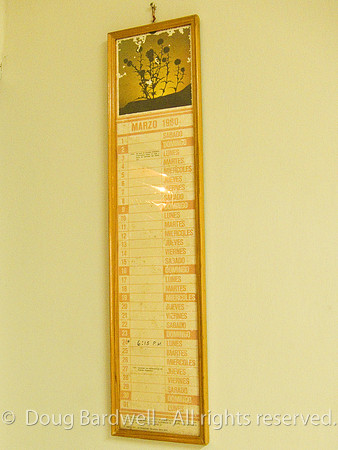 MARZO 1980
1 SABADO
2 DOMINGO
3 LUNES
4 MARTES
5 MIERCOLES
6 JUEVES
7 VIERNES
8 SABADO
9 DOMINGO
10 LUNES
11 MARTES
12 MIERCOLES
13 JUEVES
14 VIERNES
15 SABADO
16 DOMINGO
17 LUNES
18 MARTES
19 MIERCOLES
20 JUEVES
21 VIERNES
22 SABADO
23 DOMINGO
24 LUNES
25 MARTES
26 MIERCOLES
27 JUEVES
28 VIERNES
29 SABADO
30 DOMINGO
31
© Doug Bardwell - All rights reserved.